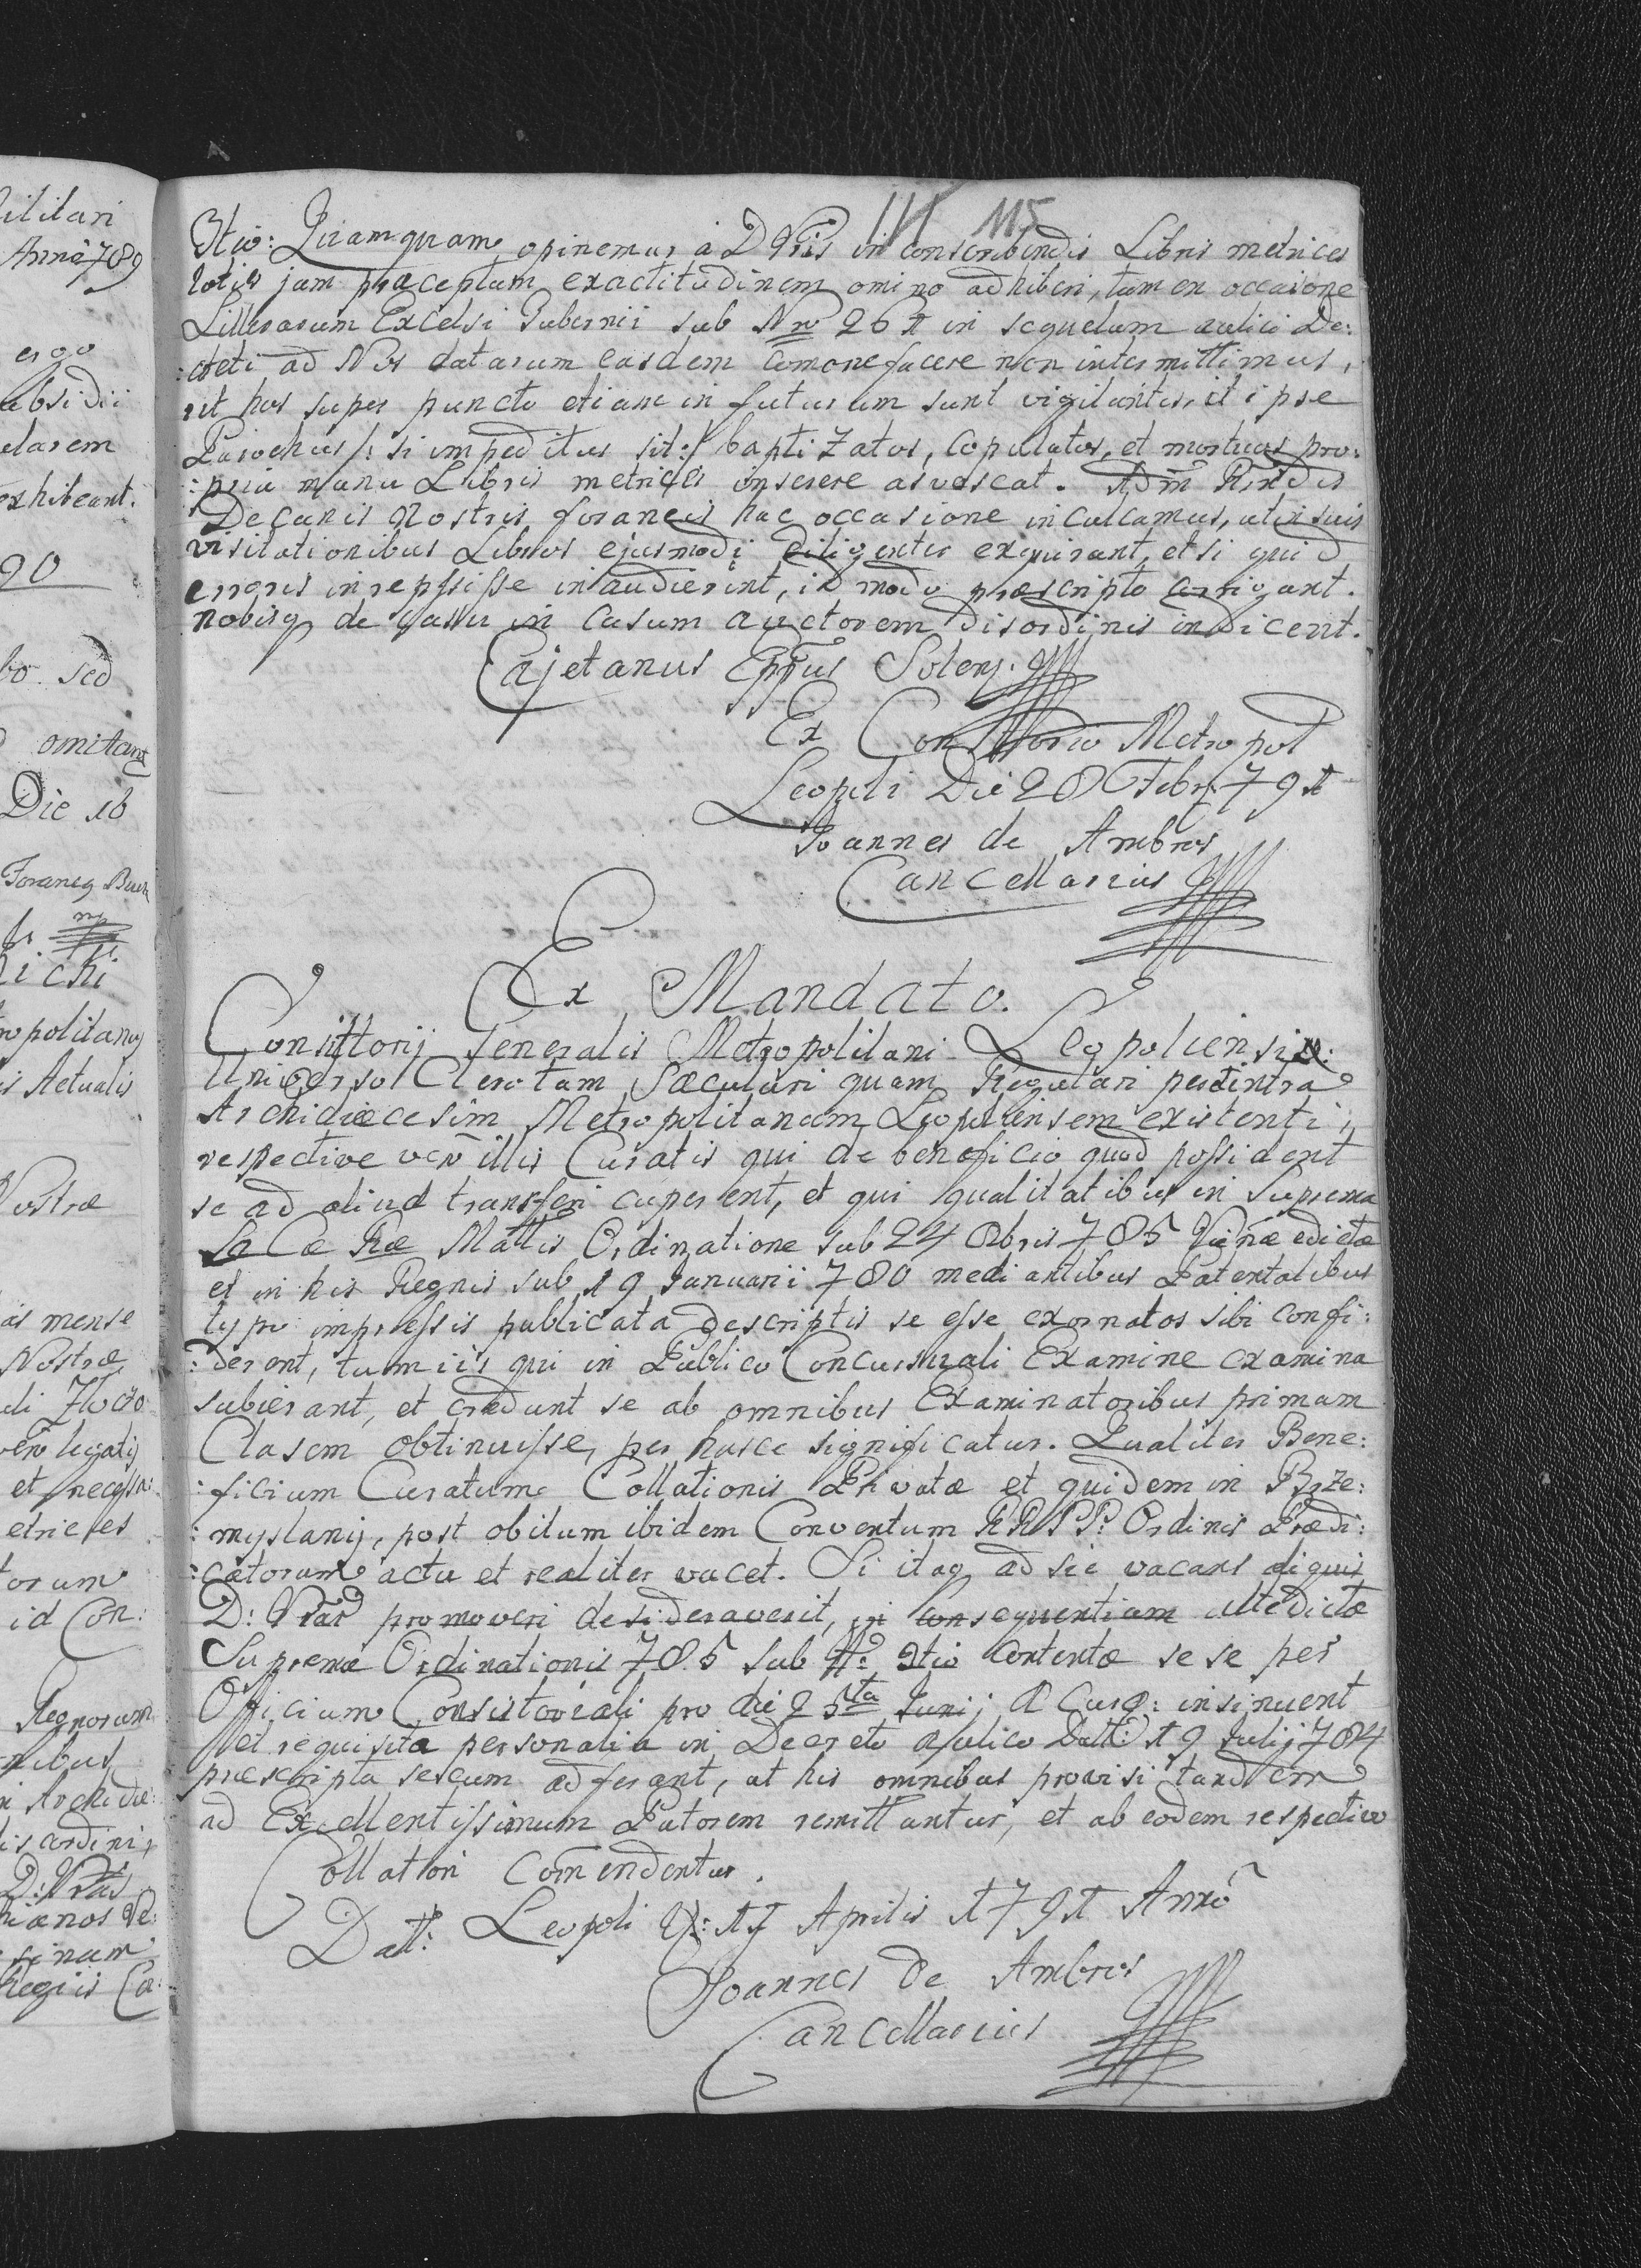 ilitari
Anno 789
ergo
absidii
ularem
exhibeant.
90
bo. sed
omitant
Die 16
Foraneq
ichi
ropolitanq
is Actualis
Nostræ
ais mense
Nostræ,
vero legatis
et necessa:
etrices
torum
id Con:
Regnorum
nibus,
n Archidiæ:
discordinis
D: Vrãs
sinum
Regiis Ca:
111 115
3tio: Quamquam opinemur à D Vris in conscribendis Libris metrices
toties jam præceptam exactitudinem omino adhiberi, tamen occasione
Litterarum Excelsi Gubernii sub Nro 261 in sequelam aulici De:
:creti ad Nos datarum easdem comonefacere non intermittimus,
ut hos super puncto etiam in futurum sunt vigilantes, ut ipse
Parochus /: si impeditus sit :/ baptizatos, copulatos, et mortuos pro:
:pria manu Libris metrices inserere asvescat. Adm̃ Rñdis
Decanis Nostris foraneis hac occasione inculcamus, ut in suis
visitationibus Libros ejusmodi diligenter exquirant, et si quid
erroris inrepsisse inaudierint, id modo præscripto corrigant.
nobisq de casu in casum auctorem disordinis indicent.
Cajetanus Eppus Solens.
Ex Consistorio Metropol
Leopoli Die 28 Febr. 791
Joannes de Ambros
Cancellarius
Ex Mandato.
Consittorij Generalis Metropolitani Leopoliensis:
Universo Clero tam Sæculari quam Regulari per et intra
Archidiæcesim Metropolitanam Leopoliensem existenti,
respective verò illis Curatis qui de beneficio quod possident
se ad aliud transferi cuperent, et qui qualitatibus in Suprema
Sa Cæ Ræ Mattis Ordinatione sub 24 8bris 785 Viẽnæ edictæ
et in his Regnis sub 19 Januarii 780 mediantibus Patentalibus
typo impressis publicata descriptis se esse exornatos sibi confi:
:derent, tum iis qui in Publico Concursuali Examine examina
subierant, et credunt se ab omnibus Examinatoribus primam
Clasem obtinuisse, per hasce significatur. Qualiter Bene:
:ficium Curatum Collationis Privatæ et quidem in Brze:
:myslany, post obitum ibidem Conventum RR PP: Ordinis Prædi:
:catorum actu et realiter vacet. Si itaq ad sic vacans aliquis
D: Vrãr promoveri desideraverit, in consequentiam altedictæ
Supremæ Ordinationis 785 sub No 3tio contentæ se se per
Officium Consistoriali pro die 25ta Junij A Cura: insinuent
et requisita personalia in Decreto Aulico Datt: 19 Julij 784
præscripta secum adferant, ut his omnibus provisi tandem
ad Excellentissimum Patorem remittantur, et ab eodem respectivo
Collatori Com̃endentur.
Datt: Leopoli D: 15 Aprilis 1791 Anno
Joannes de Ambros
Cancellarius